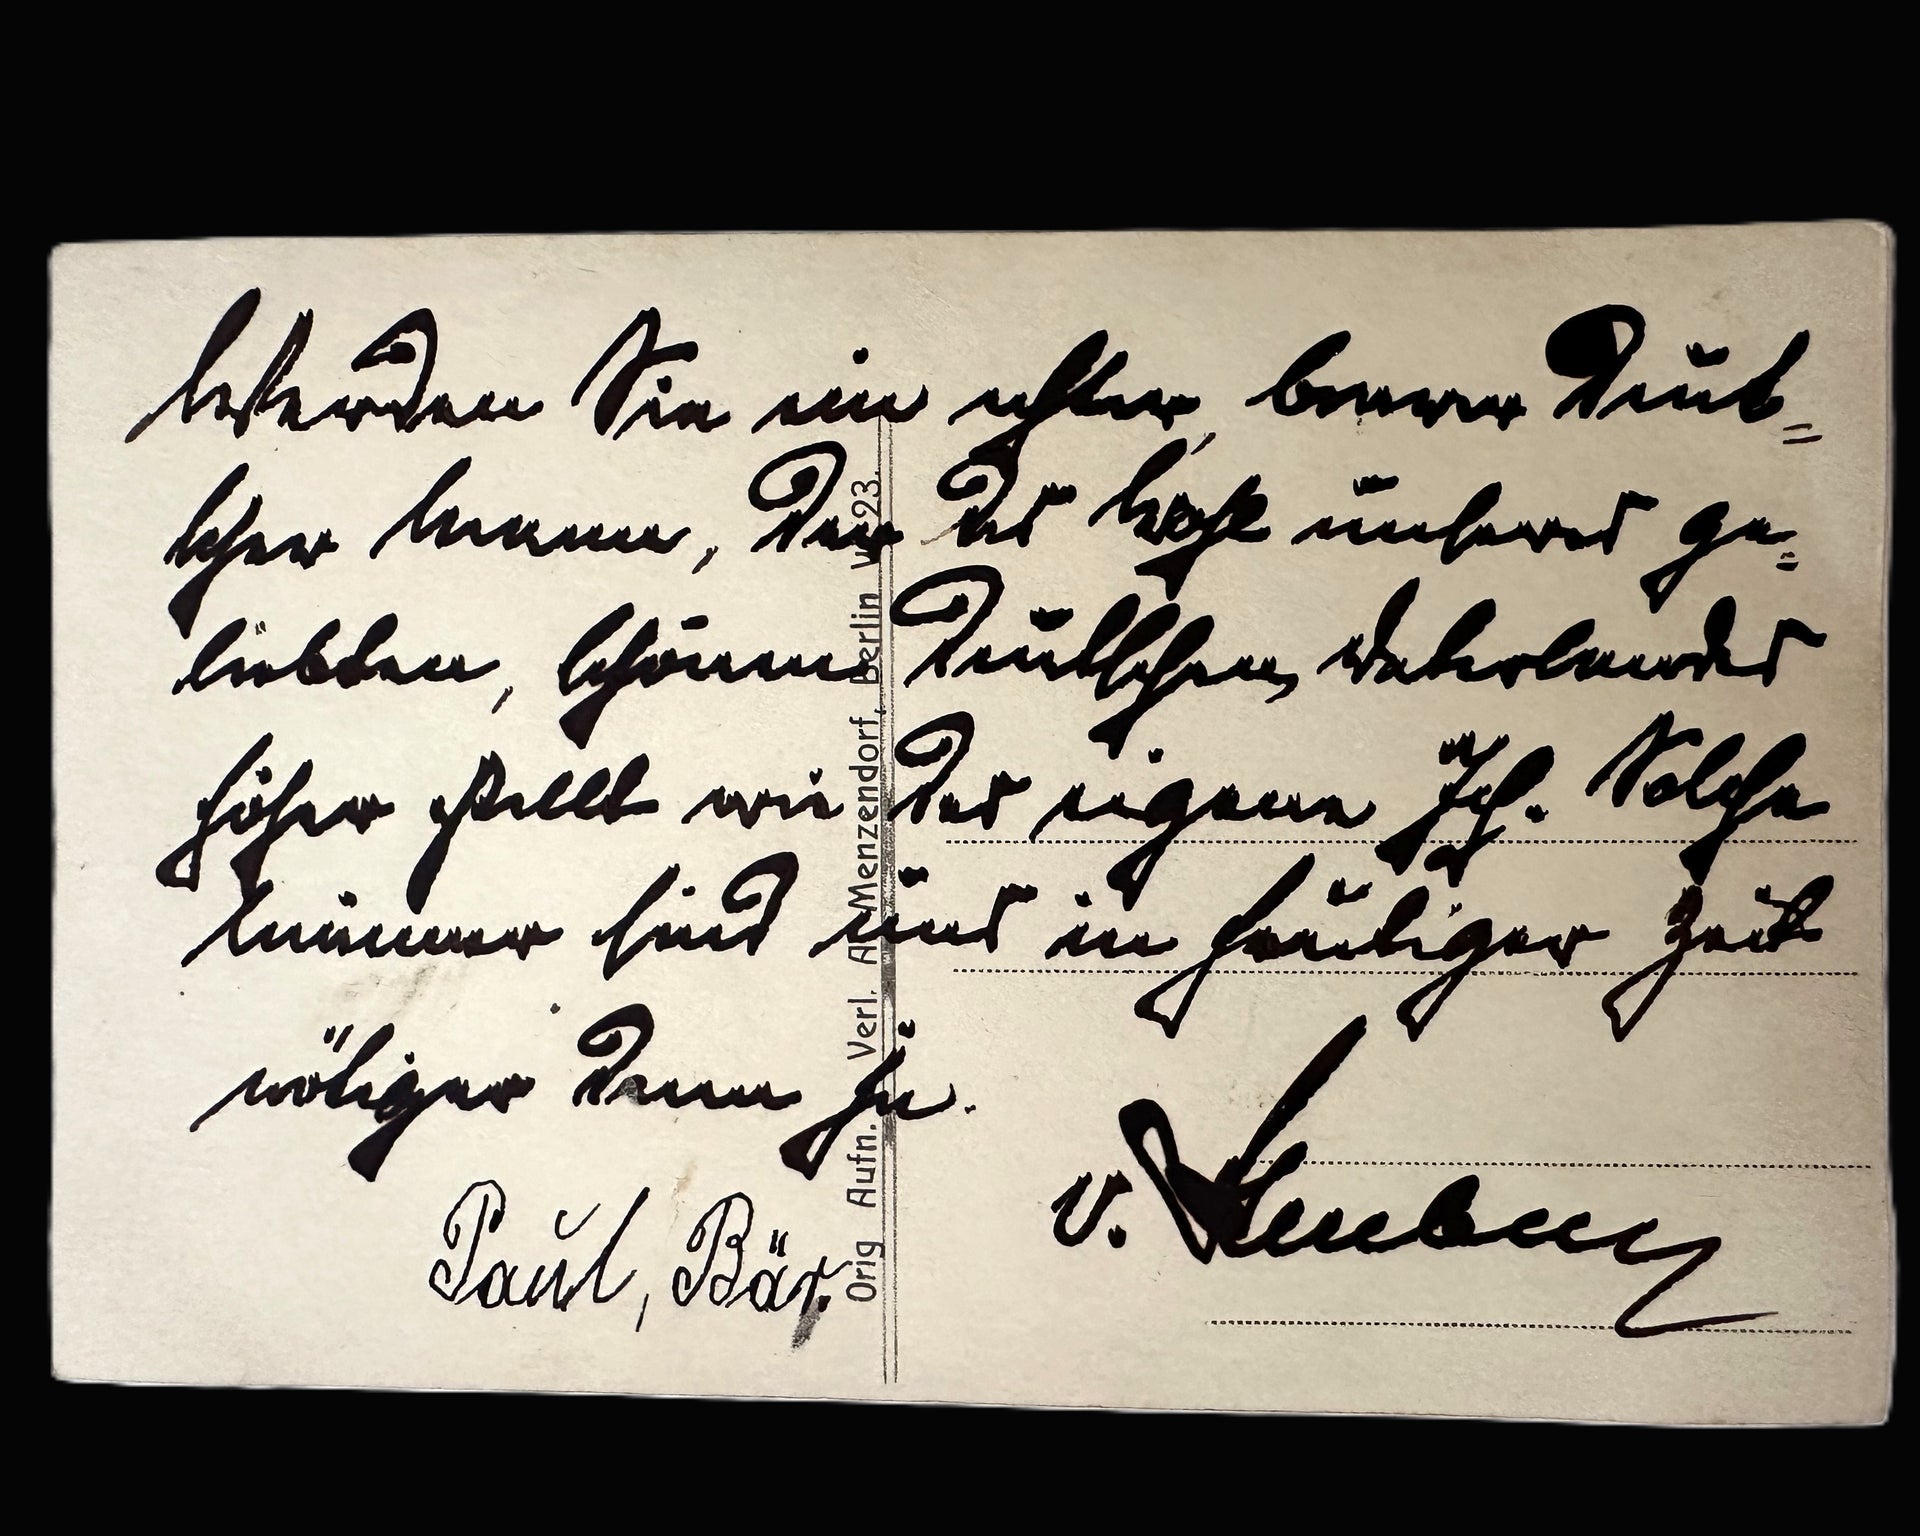 Werden Sie ein echter, braver Deut=
scher Mann, der das Wohl unseres ge=
liebten, schönen Deutschen Vaterlandes
höher stellt wie das eigene Ich. Solche
Männer sind uns in heutiger Zeit
nötiger denn je.
Paul, Bär.
v.
Orig Aufn. Verl. A. Menzendorf, Berlin W 23.